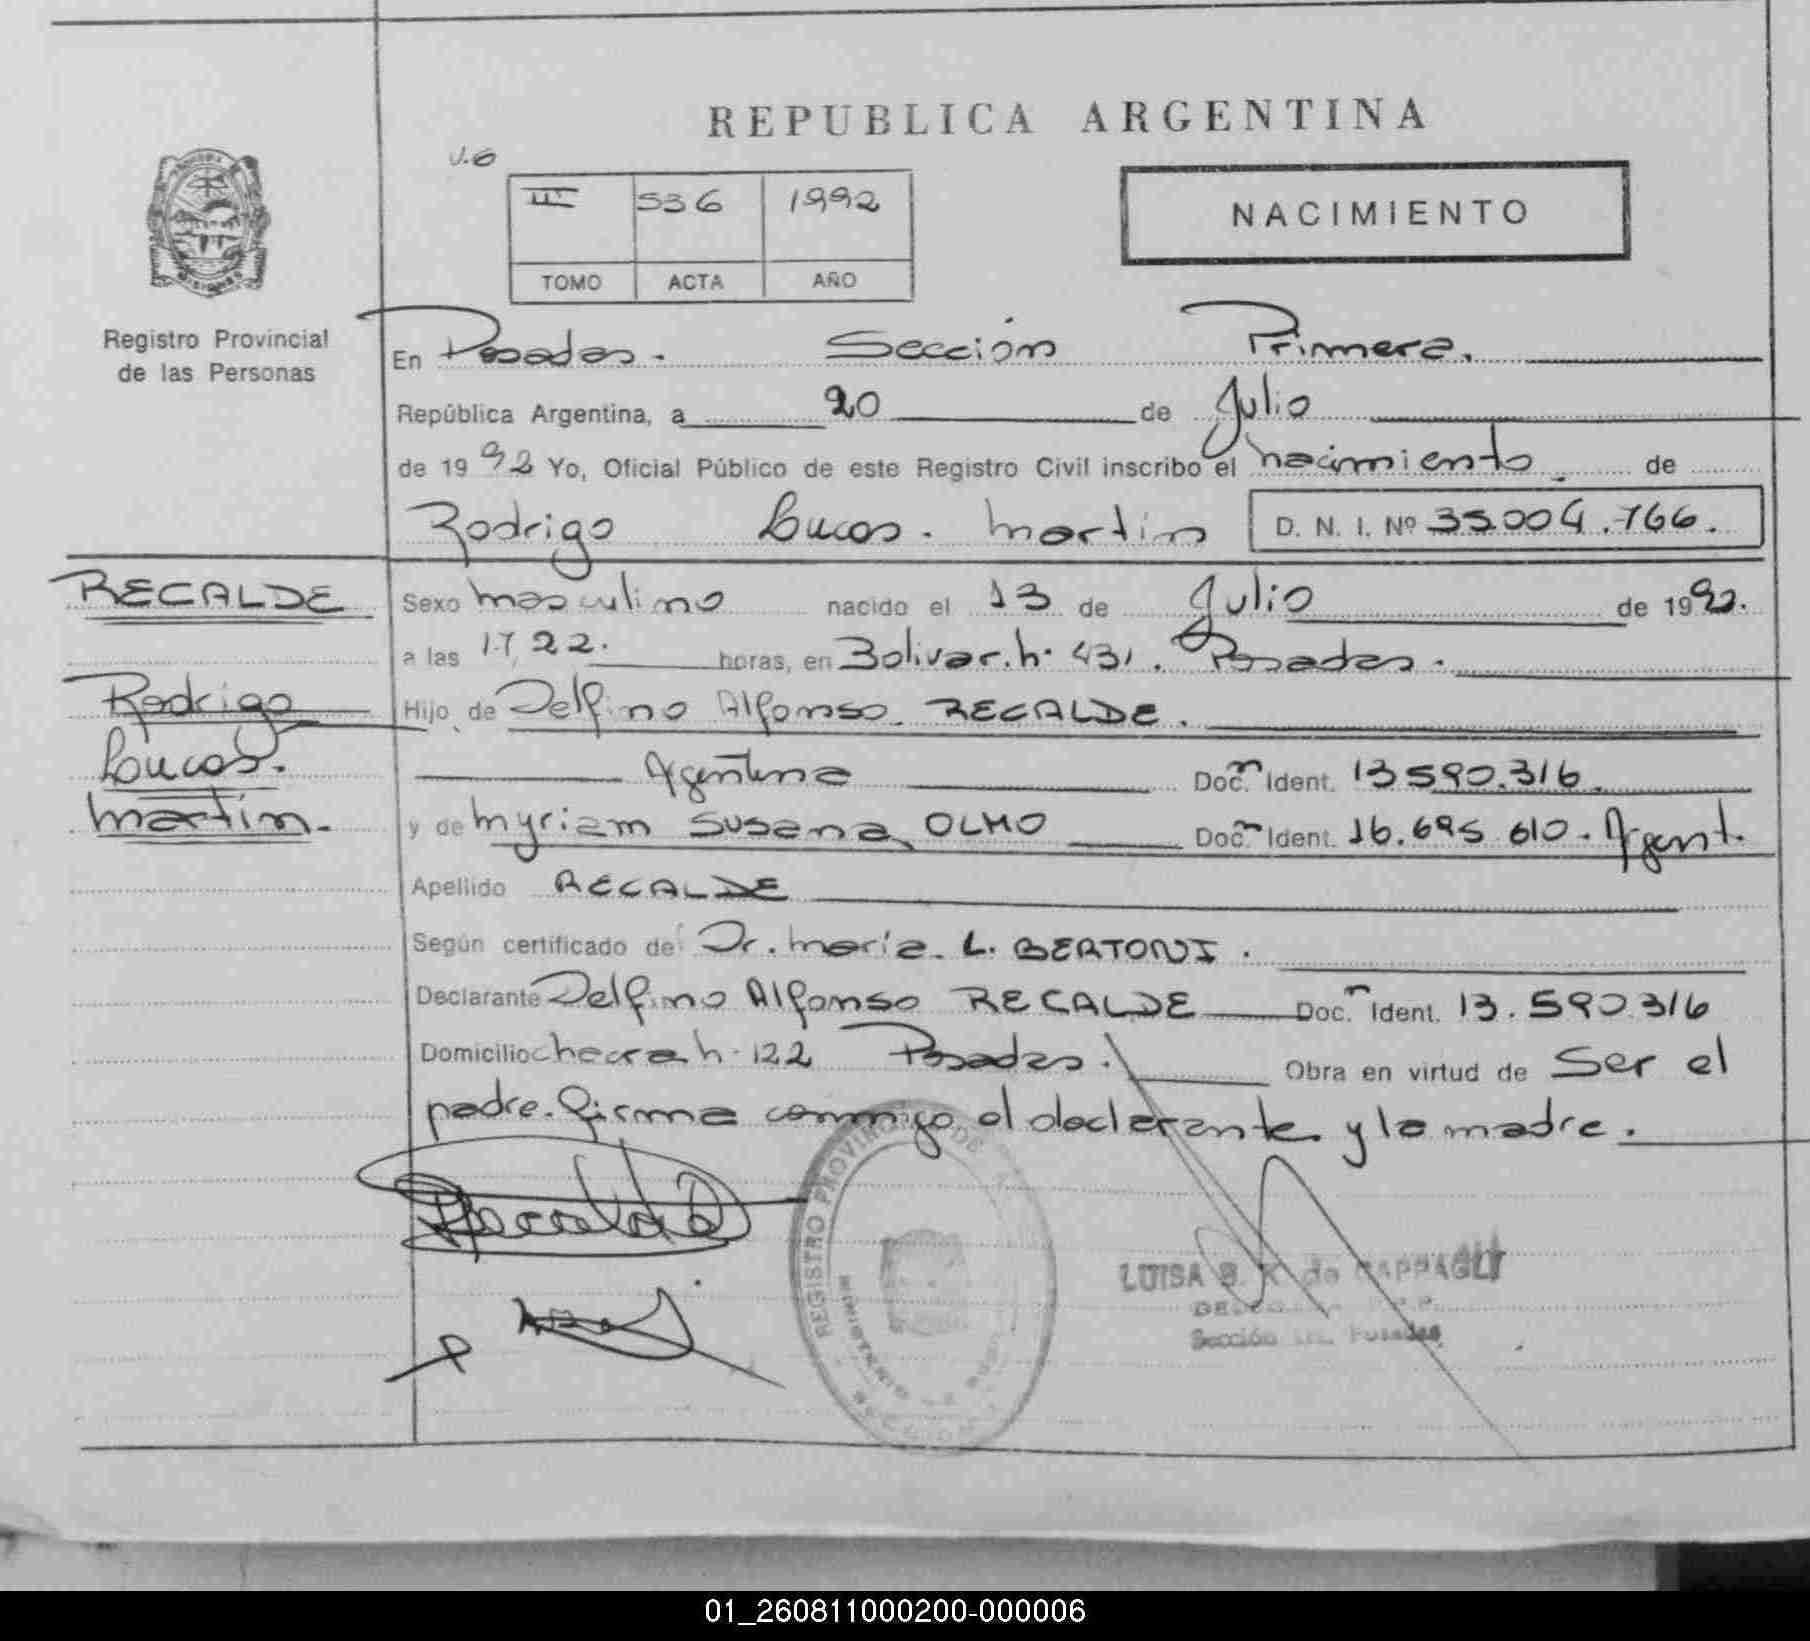 REPUBLICA ARGENTINA
536 1992
NACIMIENTO
TOMO ACTA AÑO
Registro Provincial
de las Personas
En Posadas. Sección Primera.
República Argentina, a 20 de Julio
de 1992 Yo, Oficial Público de este Registro Civil inscribo el nacimiento de
Rodrigo Lucas. Martin D. N. I. Nº 35.004.766.
RECALDE
Rodrigo
Lucas.
Martín.
Sexo Masculino nacido el 13 de Julio de 1992.
a las 17,22. horas, en Bolivar. h. 431. Posadas.
Hijo de Delfino Alfonso RECALDE.
Argentina Doc. Ident. 13590.316.
y de Myriam Susana OLMO Doc. Ident. 16.695 610. Argent.
Apellido RECALDE
Según certificado de Dr. Maria. L. BERTONI.
Declarante Delfino Alfonso RECALDE Doc. Ident. 13.590.316
Domicilio chacra h. 122 Posadas. Obra en virtud de Ser el
padre. Firma conmigo el declarante y la madre.
Recalde
REGISTRO PROVINCIAL DE
MINISTERIO DE
LUISA de
Sección Posadas
01_260811000200-000006